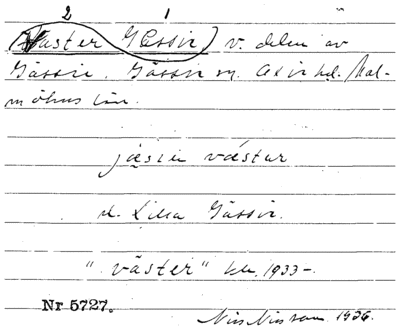 2 1
(Väster Gässie) v. delen av
Gässie. Gässie sn. Oxie hd. Mal-
möhus län.
jäsie västar
el. Lilla Gässie.
"väster" kln 1933-.
Nr 5727.
Nils Nilsson 1936.